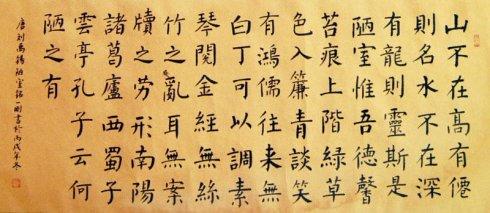 山不在高有僊
則名水不在深
有龍則靈斯是
陋室惟吾德馨
苔痕上階綠草
色入簾青談笑
有鴻儒往來無
白丁可以調素
琴閱金經無絲
竹之亂耳無案
牘之勞形南陽
諸葛廬西蜀子
雲亭孔子云何
陋之有
唐刘禹錫陋室銘一刚書於丙戌年冬